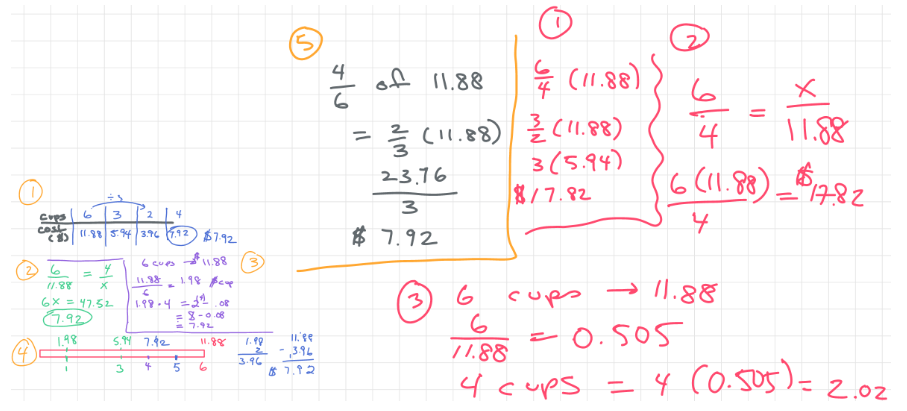 ①
÷3
cups | 6 | 3 | 2 | 4
cost ($) | 11.88 | 5.94 | 3.96 | 7.92 $7.92
②
6/11.88 = 4/x
6x = 47.52
7.92
③
6 cups → $11.88
11.88/6 = 1.98 $/cup
1.98 · 4 = 2·4 - .08
= 8 - 0.08
= 7.92
④
1.98 5.94 7.92 11.88
1 3 4 5 6
1.98
2
3.96
11.88
- 3.96
$ 7.92
⑤
4/6 of 11.88
= 2/3 (11.88)
23.76/3
$ 7.92
①
6/4 (11.88)
3/2 (11.88)
3 (5.94)
$17.82
②
6/4 = x/11.88
6(11.88)/4 = $17.82
③
6 cups → 11.88
6/11.88 = 0.505
4 cups = 4 (0.505) = 2.02